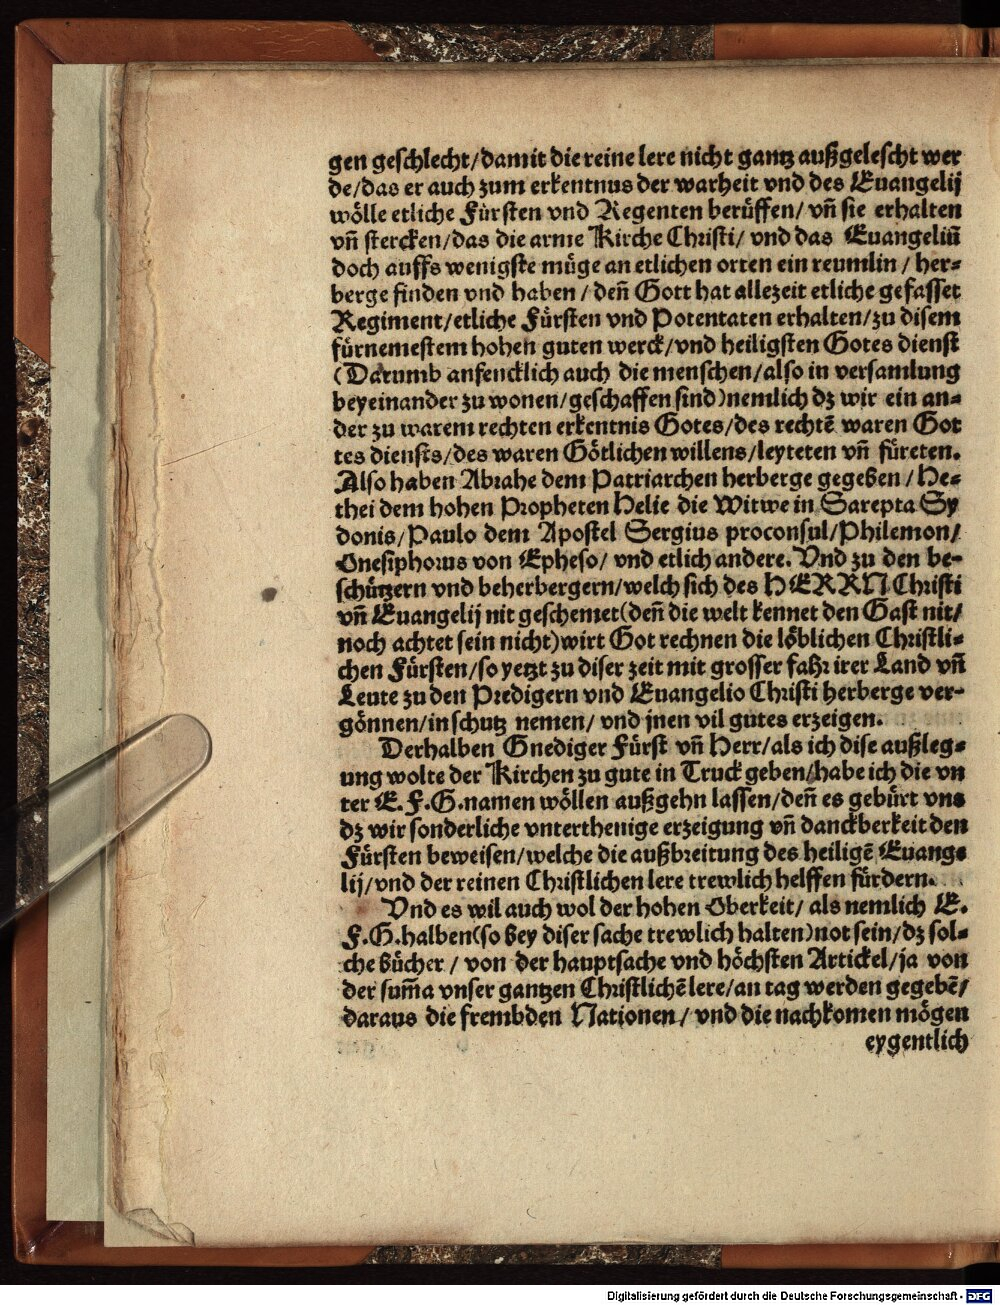 gen geschlecht/damit die reine lere nicht gantz außgelescht wer
de/das er auch zum erkentnus der warheit vnd des Euangelij
wölle etliche Fürsten vnd Regenten berüffen/ vñ sie erhalten
vñ stercken/das die arme Kirche Christi/ vnd das Euangeliũ
doch auffs wenigste müge an etlichen orten ein reumlin / her-
berge finden vnd haben / deñ Gott hat allezeit etliche gefasset
Regiment/etliche Fürsten vnd Potentaten erhalten/zu disem
fürnemestem hohen guten werck/vnd heiligsten Gotes dienst
(Darumb anfencklich auch die menschen/also in versamlung
beyeinander zu wonen/geschaffen sind)nemlich dz wir ein an-
der zu warem rechten erkentnis Gotes/des rechtẽ waren Got
tes diensts/des waren Götlichen willens/leyteten vñ füreten.
Also haben Abrahe dem Patriarchen herberge gegeben / He-
thei dem hohen Propheten Helie die Witwe in Sarepta Sy
donis/Paulo dem Apostel Sergius proconsul/Philemon/
Onesiphorus von Epheso/ vnd etlich andere. Vnd zu den be-
schützern vnd beherbergern/welch sich des HERRN Christi
vñ Euangelij nit geschemet(deñ die welt kennet den Gast nit/
noch achtet sein nicht)wirt Got rechnen die löblichen Christli-
chen Fürsten/so yetzt zu diser zeit mit grosser fahr irer Land vñ
Leute zu den Predigern vnd Euangelio Christi herberge ver-
gönnen/in schutz nemen/ vnd jnen vil gutes erzeigen.
Derhalben Gnediger Fürst vñ Herr/als ich dise außleg-
ung wolte der Kirchen zu gute in Truck geben/habe ich die vn
ter E. F. G. namen wöllen außgehn lassen/deñ es gebürt vns
dz wir sonderliche vnterthenige erzeigung vñ danckberkeit den
Fürsten beweisen/welche die außbreitung des heiligẽ Euange
lij/vnd der reinen Christlichen lere trewlich helffen fürdern.
Vnd es wil auch wol der hohen Oberkeit/ als nemlich E.
F. G. halben(so bey diser sache trewlich halten)not sein/dz sol-
che bücher / von der hauptsache vnd höchsten Artickel/ja von
der sum̃a vnser gantzen Christlichẽ lere/an tag werden gegebẽ/
daraus die frembden Nationen/ vnd die nachkomen mögen
eygentlich
Digitalisierung gefördert durch die Deutsche Forschungsgemeinschaft - DFG